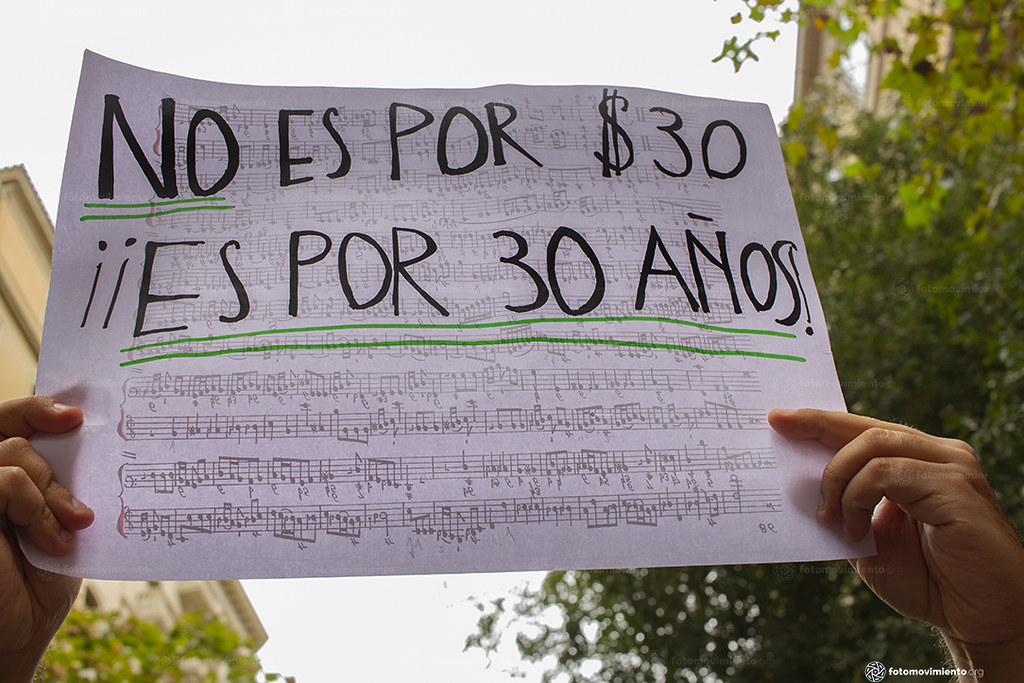 NO ES POR $30
¡¡ES POR 30 AÑOS!
fotomovimiento.org